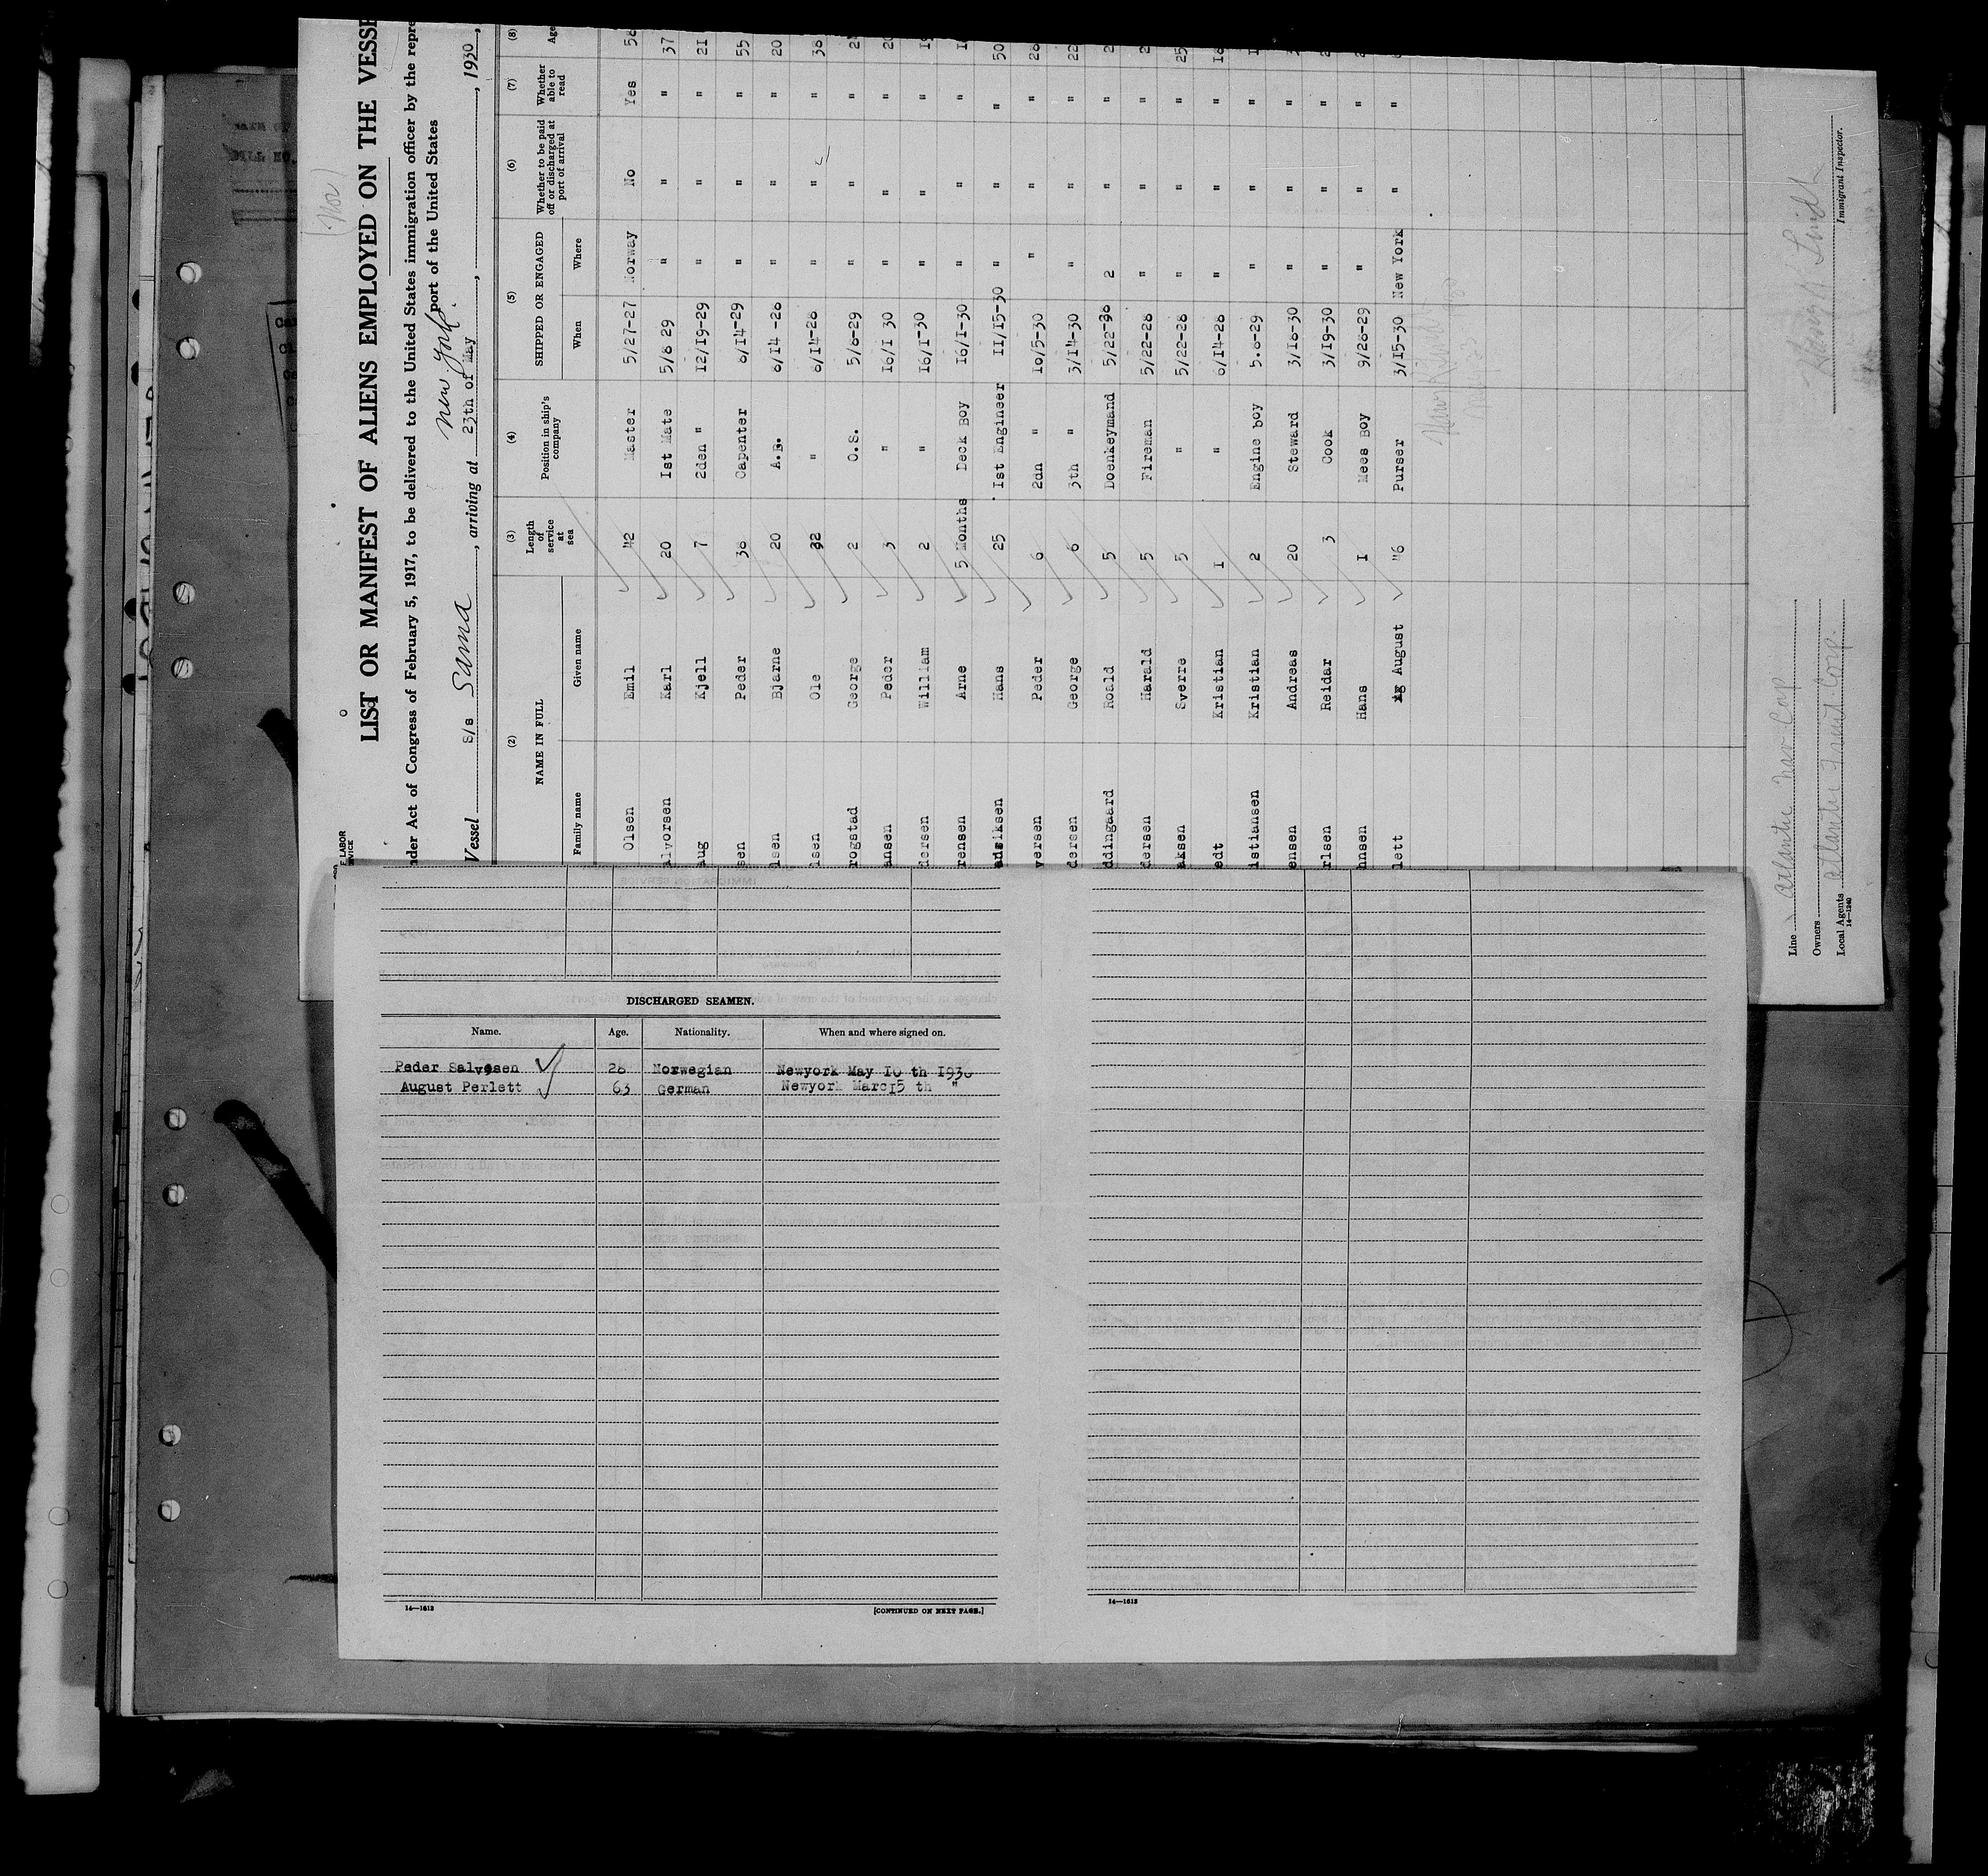 (Nor)
LIST OR MANIFEST OF ALIENS EMPLOYED ON THE VESSE
nder Act of Congress of February 5, 1917, to be delivered to the United States immigration officer by the repre
port of the United States
Vessel S/s Sama, arriving at New York. 23th of May, 1930,
(2) (3) (4) (5) (6) (7) (8)
NAME IN FULL Length of service at sea Position in ship's company SHIPPED OR ENGAGED Whether to be paid off or discharged at port of arrival Whether able to read Age
Family name Given name When Where
Olsen Emil 42 Master 5/27-27 Norway No Yes 58
alvorsen Karl 20 Ist Mate 5/8 29 " " " 37
aug Kjell 7 2den " 12/19-29 " " " 21
sen Peder 38 Capenter 8/14-29 " " " 55
lsen Bjarne 20 A.B. 8/14 -28 " " " 20
lsen Ole 32 " 8/14-28 " " " 38
rogstad George 2 O.S. 5/8-29 " " "
ansen Peder 3 " 16/1 30 " " "
dersen William 2 " 16/1-30 " " "
rensen Arne 5 Months Deck Boy 16/1-30 " " "
Hans 25 Ist Engineer 11/15-30 " " " 50
versen Peder 6 2dn " 10/5-30 " " " 28
dersen George 6 3th " 3/14-30 " " " 22
ddingaard Roald 5 Doenkeymand 5/22-28 2 " "
dersen Harald 5 Fireman 5/22-28 " " "
aksen Sverre 5 " 5/22-28 " " " 25
edt Kristian I " 6/14-28 " " " 18
istiansen Kristian 2 Engine boy 5.8-29 " " "
ensen Andreas 20 Steward 3/18-30 " " "
rlsen Reidar 3 Cook 3/19-30 " " "
hnsen Hans I Mees Boy 9/28-29 " " "
lett August "6 Purser 3/15-30 New York " "
Line Atlantic Nav Corp
Owners
Local Agents Atlantic Fruit Corp.
14—1240
Immigrant Inspector.
DISCHARGED SEAMEN.
Name. Age. Nationality. When and where signed on.
Peder Salvesen 28 Norwegian Newyork May 10 th 1930
August Perlett 63 German Newyork Marc15 th "
14—1613 [CONTINUED ON NEXT PAGE.]
14—1613